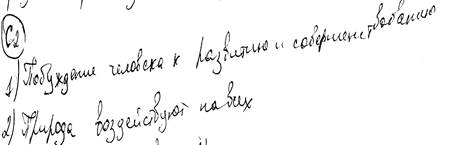 С2
1) Побуждение человека к развитию и совершенствованию
2) Природа воздействуют на всех